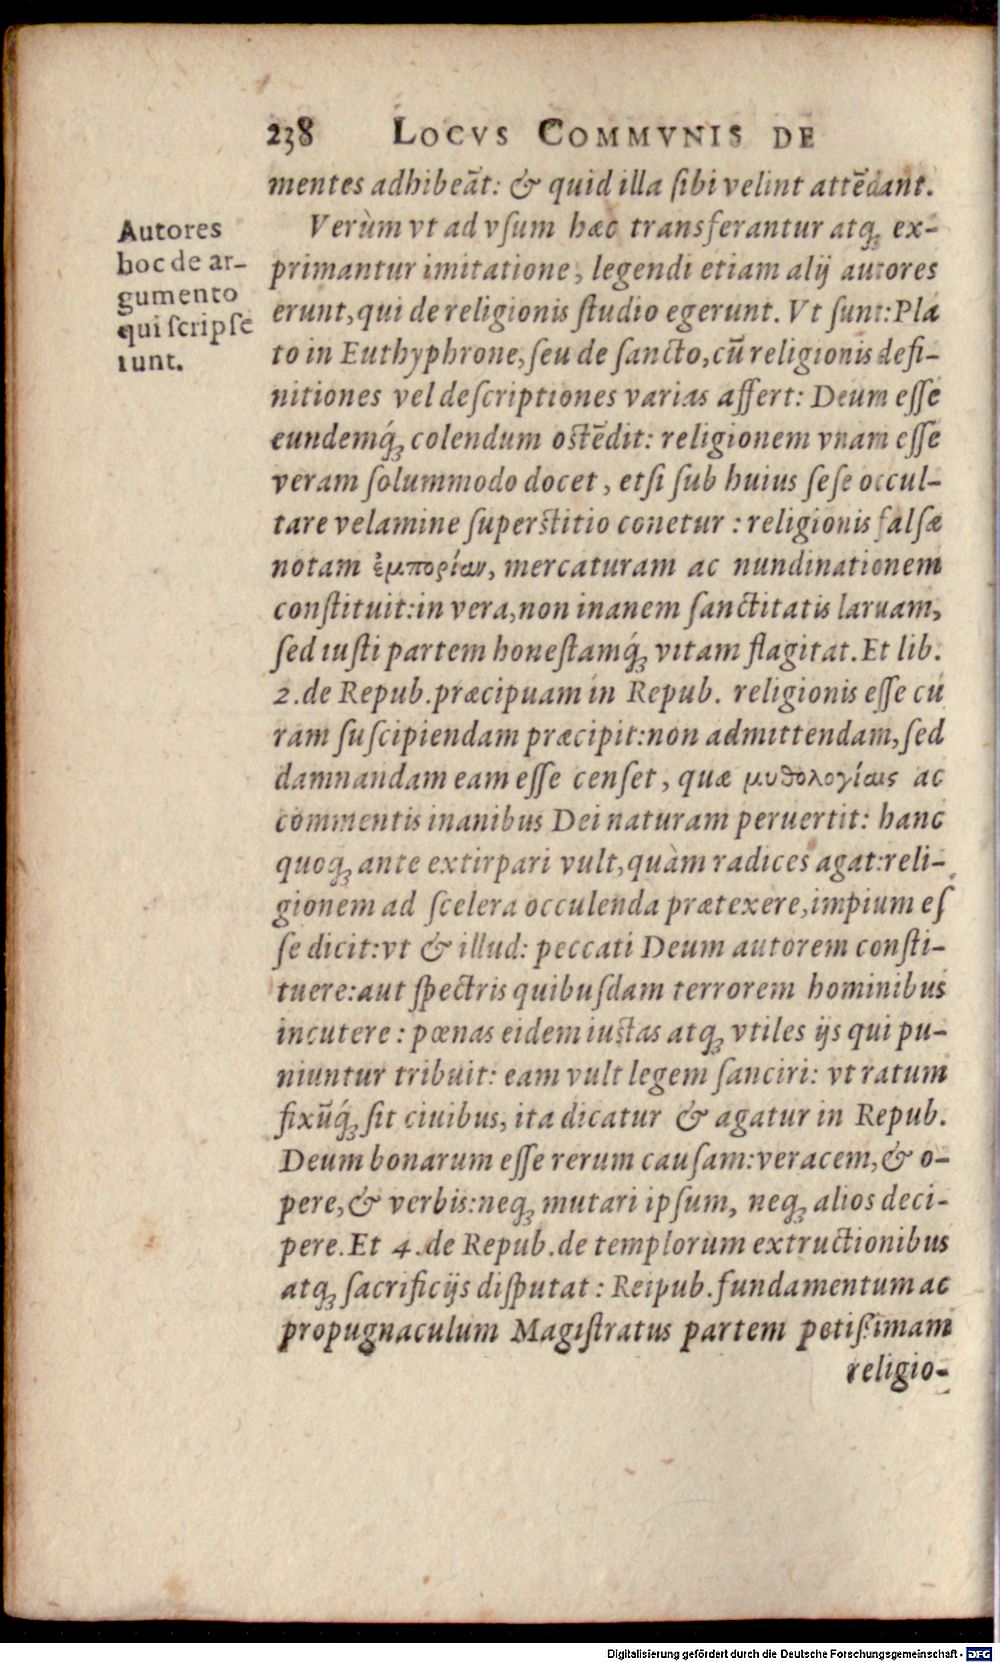 238 LOCVS COMMVNIS DE
mentes adhibeãt: & quid illa ſibi velint attẽdant.
Autores
hoc de ar-
gumento
qui ſcripſe
runt.
Verùm vt ad vſum hæc transferantur atq; ex-
primantur imitatione, legendi etiam alij autores
erunt, qui de religionis ſtudio egerunt. Vt ſunt: Pla
to in Euthyphrone, ſeu de ſancto, cũ religionis defi-
nitiones vel deſcriptiones varias affert: Deum eſſe
eundemq́; colendum oſtẽdit: religionem vnam eſſe
veram ſolummodo docet, etſi ſub huius ſeſe occul-
tare velamine ſuperſtitio conetur: religionis falſæ
notam ἐμπορίαν, mercaturam ac nundinationem
conſtituit: in vera, non inanem ſanctitatis laruam,
ſed iuſti partem honeſtamq́; vitam flagitat. Et lib.
2. de Repub. præcipuam in Repub. religionis eſſe cu
ram ſuſcipiendam præcipit: non admittendam, ſed
damnandam eam eſſe cenſet, quæ μυθολογίαις ac
commentis inanibus Dei naturam peruertit: hanc
quoq; ante extirpari vult, quàm radices agat: reli-
gionem ad ſcelera occulenda prætexere, impium eſ
ſe dicit: vt & illud: peccati Deum autorem conſti-
tuere: aut ſpectris quibuſdam terrorem hominibus
incutere: pœnas eidem iuſtas atq; vtiles ijs qui pu-
niuntur tribuit: eam vult legem ſanciri: vt ratum
fixũq́; ſit ciuibus, ita dicatur & agatur in Repub.
Deum bonarum eſſe rerum cauſam: veracem, & o-
pere, & verbis: neq; mutari ipſum, neq; alios deci-
pere. Et 4. de Repub. de templorum extructionibus
atq; ſacrificijs diſputat: Reipub. fundamentum ac
propugnaculum Magiſtratus partem potiſsimam
religio-
Digitalisierung gefördert durch die Deutsche Forschungsgemeinschaft - DFG